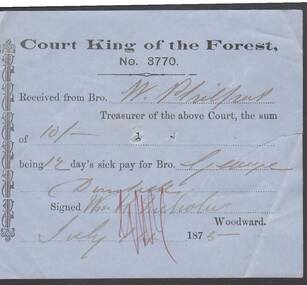 Court King of the Forest,
No. 3770.
Received from Bro. W. Philpot
Treasurer of the above Court, the sum
of 10/-
being 12 day's sick pay for Bro. George
Signed Wm Nicholls
Woodward.
July 1875